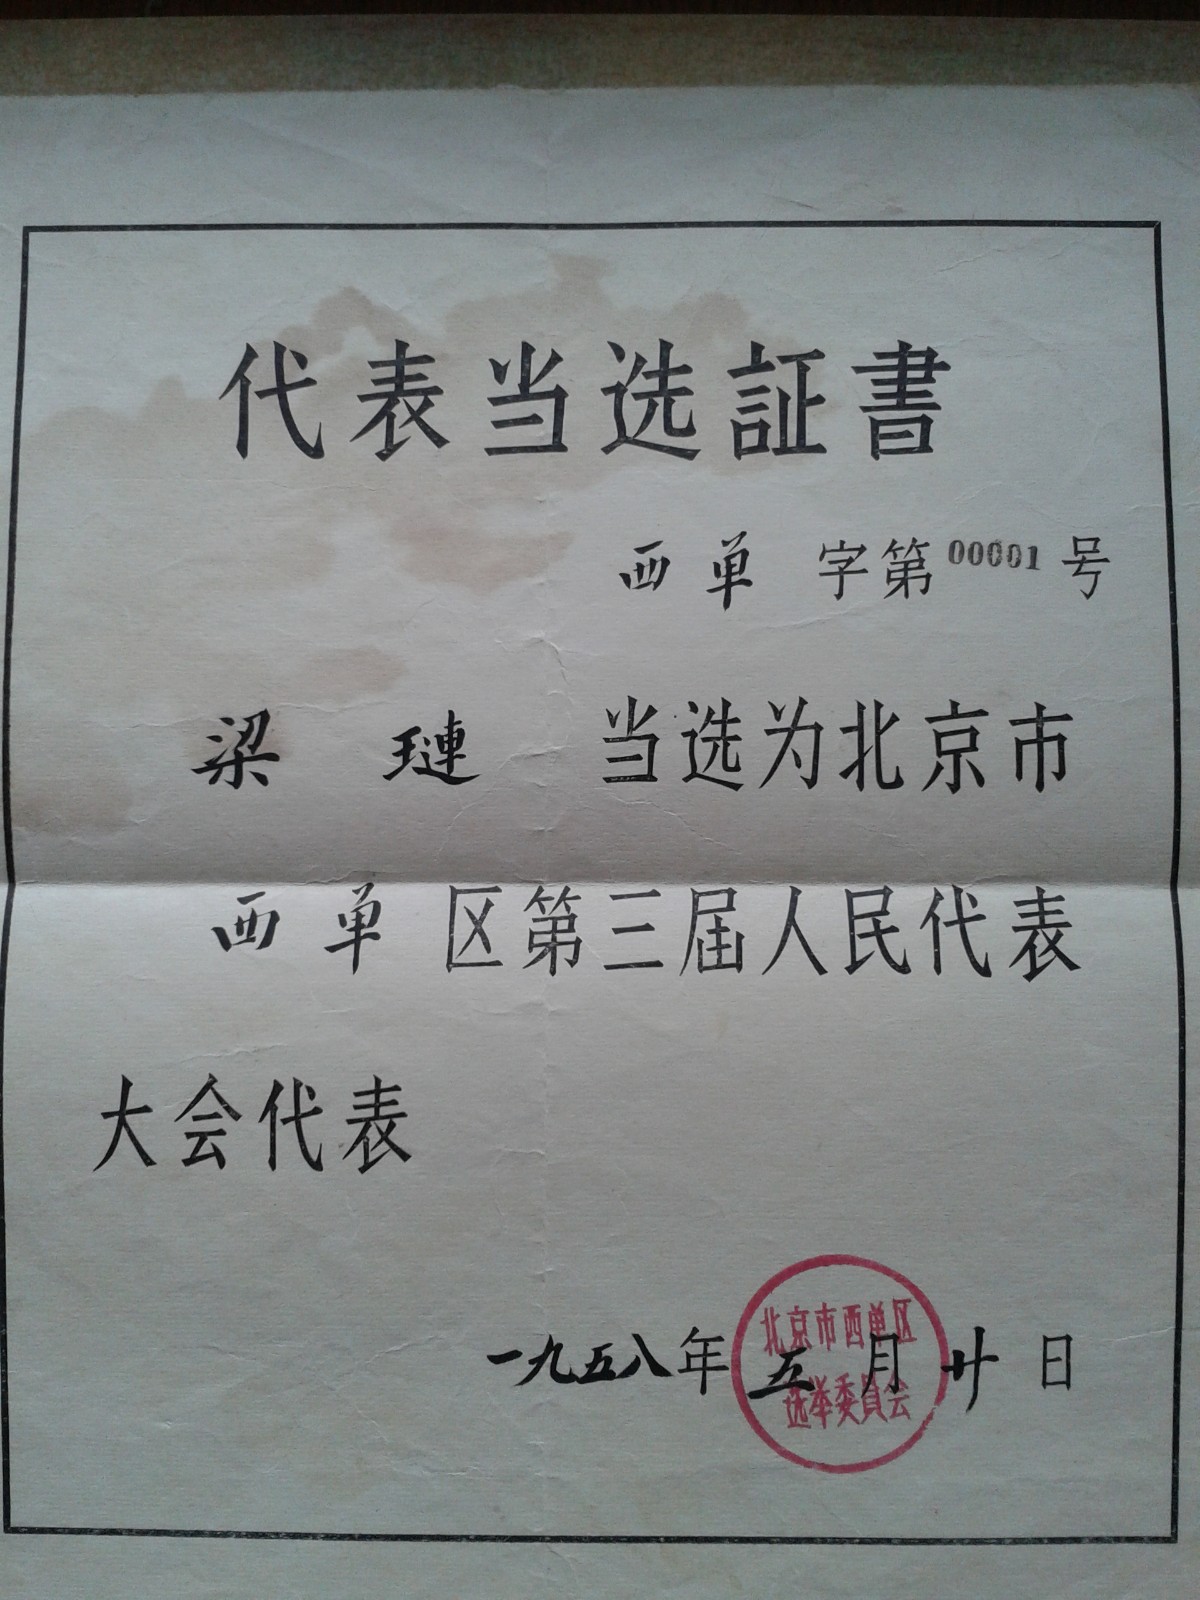 代表当选証書
西单 字第00001号
梁 璉 当选为北京市
西单区第三届人民代表
大会代表
一九五八年五月廿日
北京市西单区
选举委員会